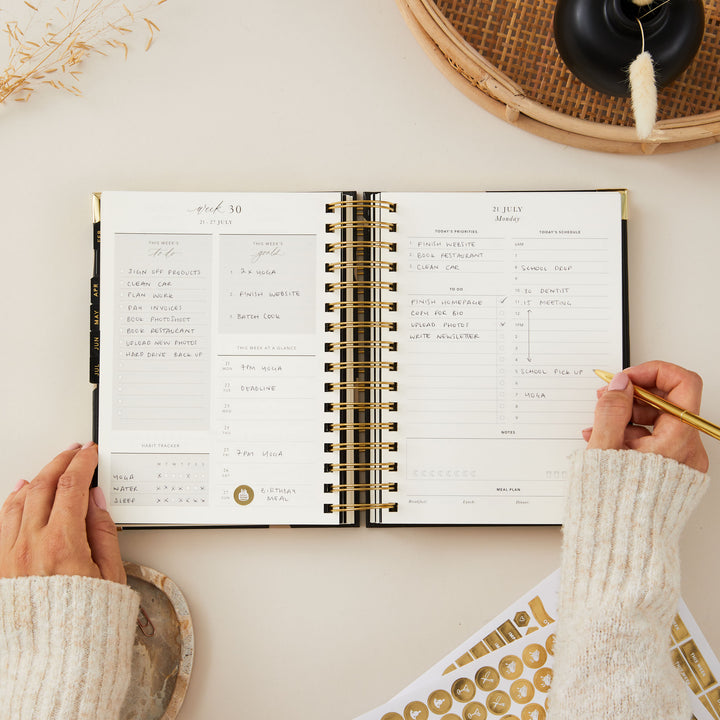 week 30
21 - 27 JULY
THIS WEEK'S
to do
SIGN OFF PRODUCTS
CLEAN CAR
PLAN WORK
PAY INVOICES
BOOK PHOTOSHOOT
BOOK RESTAURANT
UPLOAD NEW PHOTOS
HARD DRIVE BACK UP
HABIT TRACKER
M T W T F S S
YOGA
WATER
SLEEP
THIS WEEK'S
goals
1. 2 X YOGA
2. FINISH WEBSITE
3. BATCH COOK
THIS WEEK AT A GLANCE
21 MON 7PM YOGA
22 TUE DEADLINE
23 WED
24 THU
25 FRI 7PM YOGA
26 SAT
27 SUN BIRTHDAY
MEAL
APR
MAY
JUN
JUL
21 JULY
Monday
TODAY'S PRIORITIES
1 FINISH WEBSITE
2 BOOK RESTAURANT
3 CLEAN CAR
TO DO
FINISH HOMEPAGE ✓
COPY FOR BIO
UPLOAD PHOTOS ✓
WRITE NEWSLETTER
TODAY'S SCHEDULE
6AM
7
8 SCHOOL DROP
9
10 30 DENTIST
11 15 MEETING
12
1PM
2
3
4
5 SCHOOL PICK UP
6
7 YOGA
8
9
NOTES
MEAL PLAN
Breakfast: Lunch: Dinner: